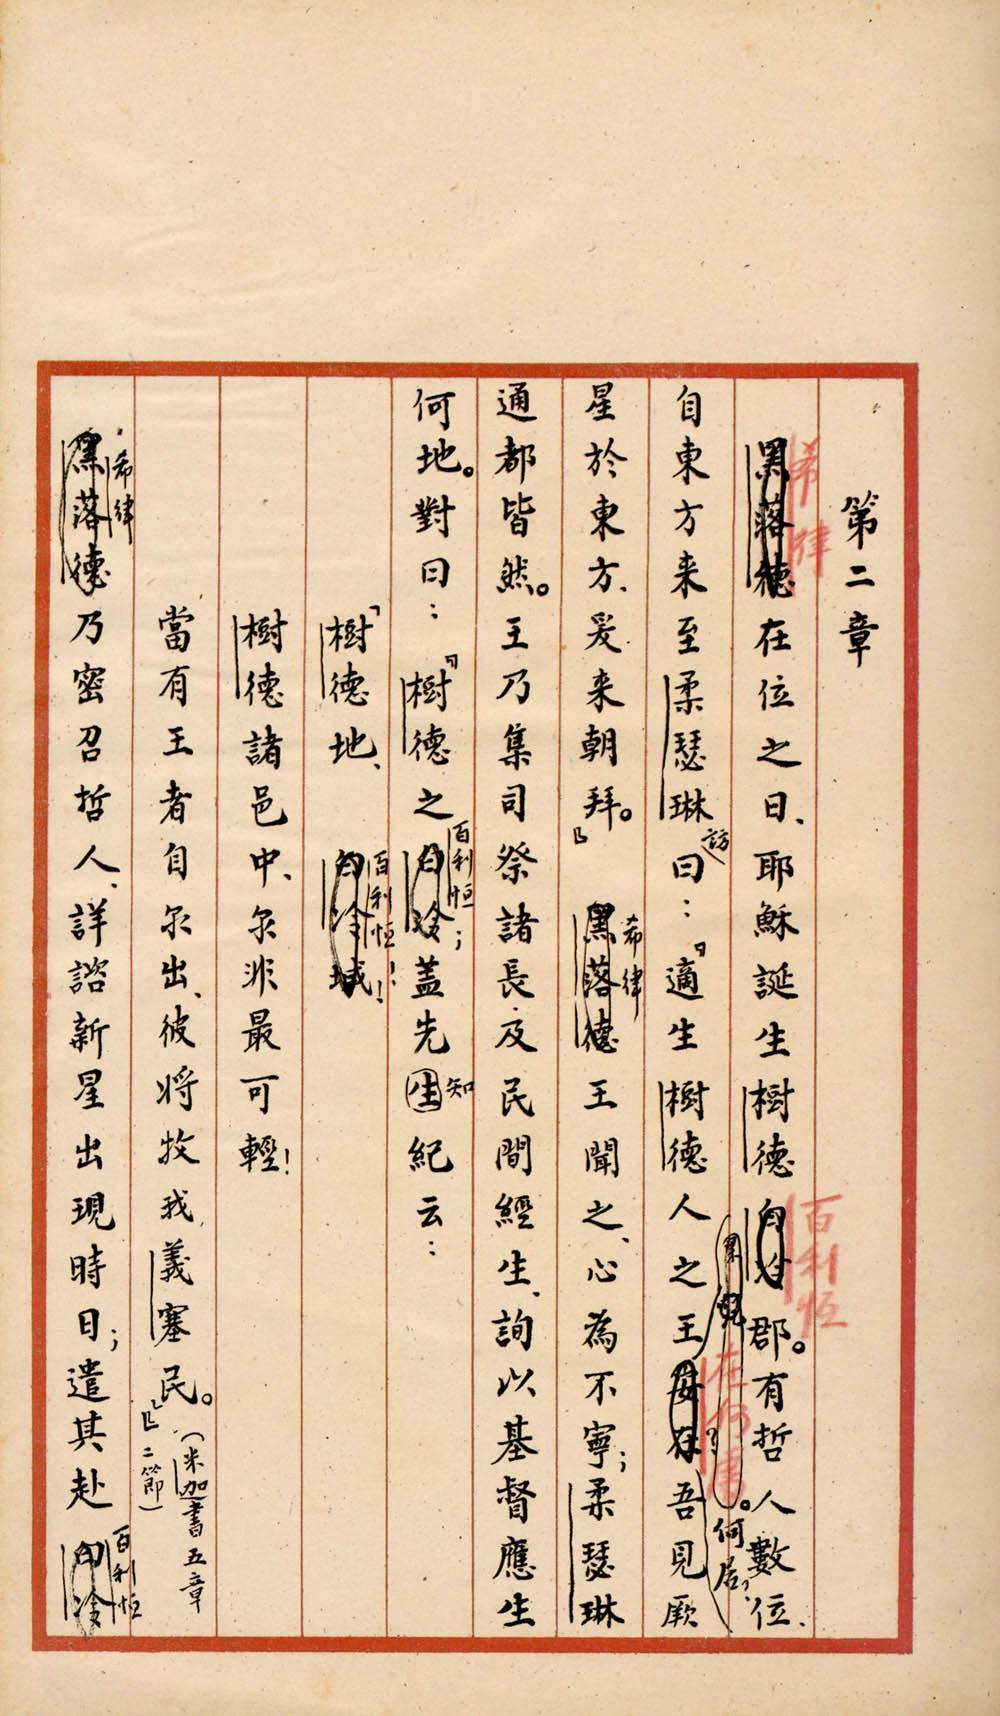 第二章
黑落德在位之日、耶穌誕生樹德白冷郡。有哲人數位、
希律
百利恒
自東方来至柔瑟琳曰：『適生樹德人之王安在吾見厥
訪
在何書
何居？
星於東方、爰来朝拜。』黑落德王聞之、心為不寧；柔瑟琳
希律
通都皆然。王乃集司祭諸長及民間經生、詢以基督應生
何地。對曰：『樹德之白冷；蓋先生紀云：
百利恒
知
「樹德地、白冷城！
百利恒！
樹德諸邑中、尔非最可輕！
當有王者自尔出、彼将牧我義塞民。」』
（米加書五章
二節）
黑落德乃密召哲人、詳諮新星出現時日；遣其赴白冷
希律
百利恒